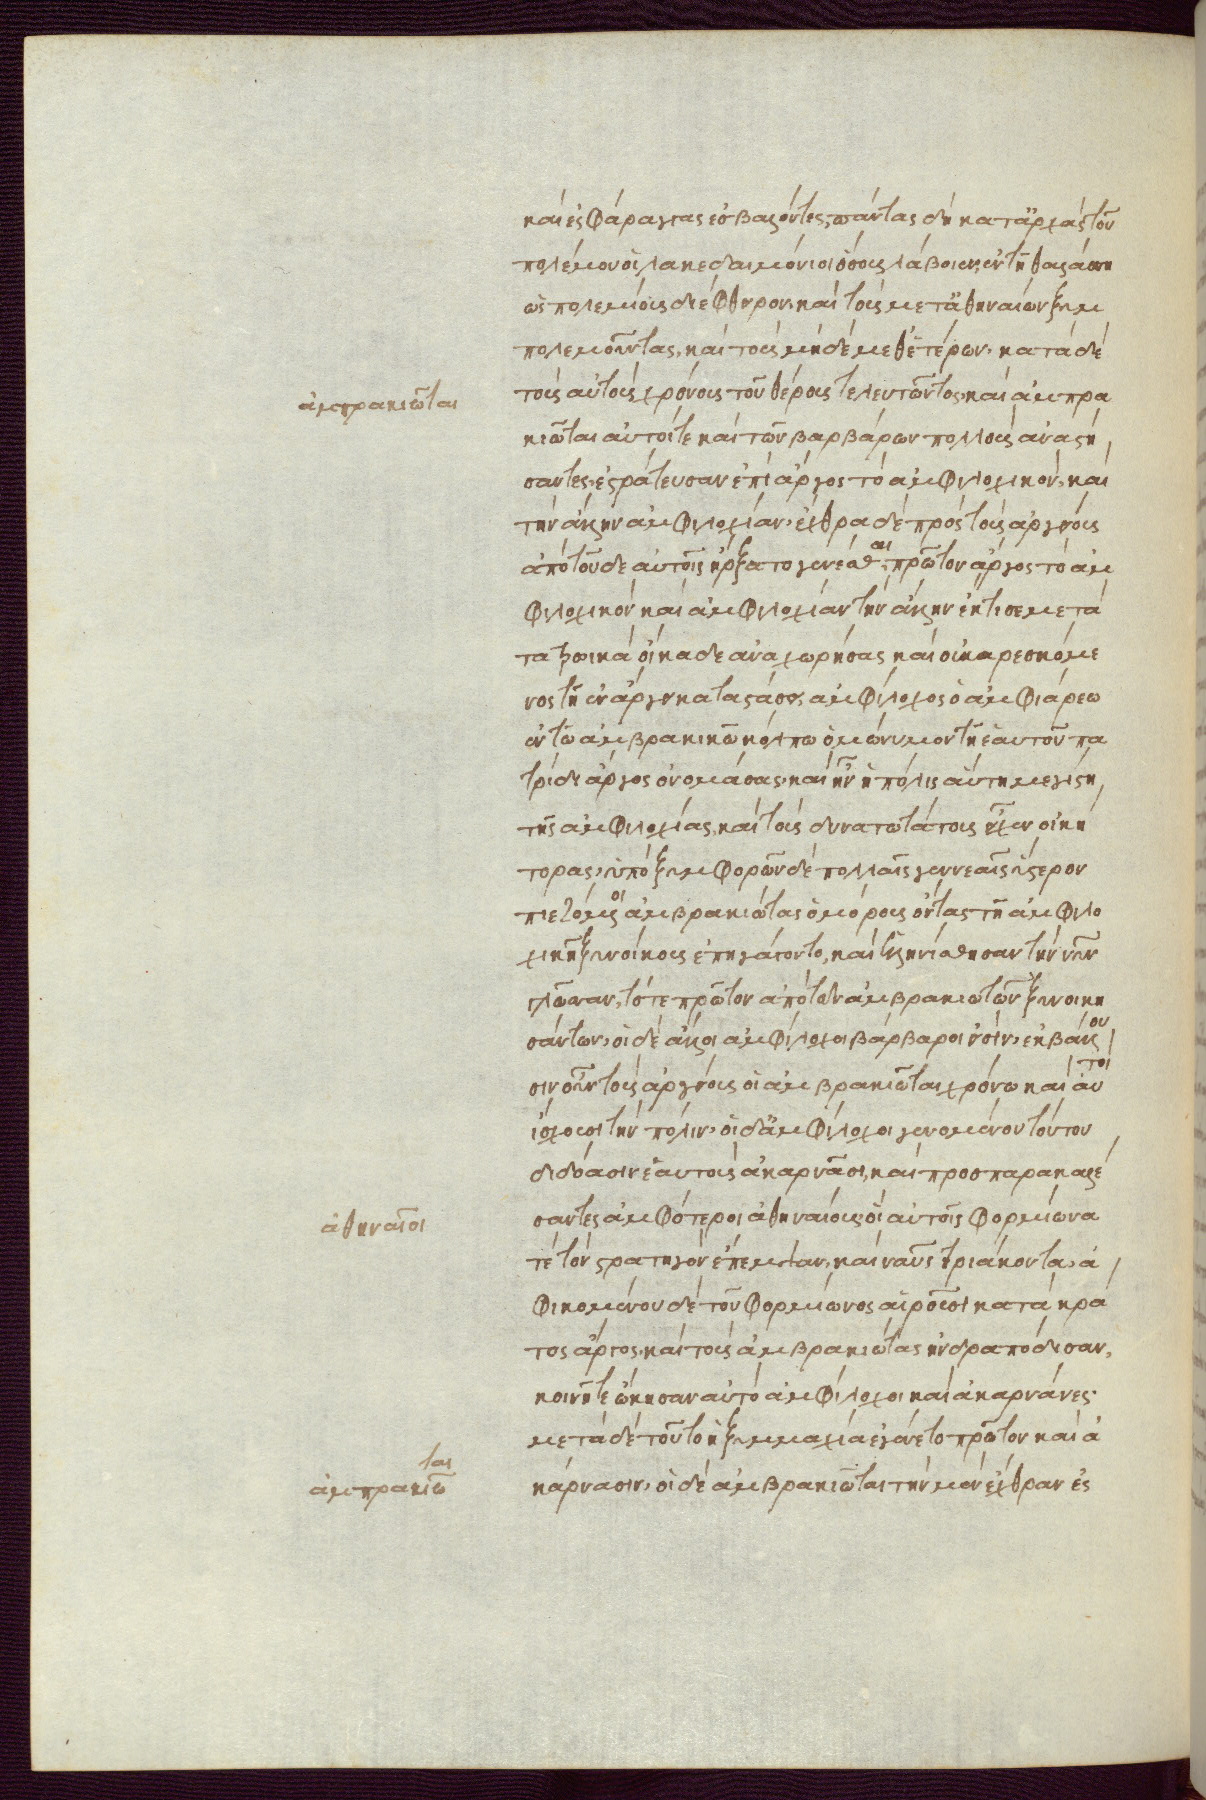 καὶ ἐς φάραγγας ἐσβαλόντες, πάντας δὴ κατ' ἀρχὰς τοῦ
πολέμου οἱ λακεδαιμόνιοι ὅσους λάβοιεν ἐν τῇ θαλάσσῃ
ὡς πολεμίους διέφθειρον, καὶ τοὺς μετ' ἀθηναίων ξυμ
πολεμοῦντας, καὶ τοὺς μηδὲ μεθ' ἑτέρων. κατὰ δὲ
ἀμπρακιῶται
τοὺς αὐτοὺς χρόνους τοῦ θέρους τελευτῶντος, καὶ ἀμπρα
κιῶται αὐτοί τε καὶ τῶν βαρβάρων πολλοὺς ἀναστή
σαντες, ἐστράτευσαν ἐπὶ ἄργος τὸ ἀμφιλοχικὸν, καὶ
τὴν ἄλλην ἀμφιλοχίαν. ἔχθρα δὲ πρὸς τοὺς ἀργείους
ἀπὸ τοῦδε αὐτοῖς ἤρξατο γενέσθαι. πρῶτον ἄργος τὸ ἀμ
φιλοχικὸν καὶ ἀμφιλοχίαν τὴν ἄλλην ἔκτισε μετὰ
τὰ τρωικὰ οἴκαδε ἀναχωρήσας καὶ οὐκ ἀρεσκόμε
νος τῇ ἐν ἄργει καταστάσει, ἀμφίλοχος ὁ ἀμφιάρεω
ἐν τῷ ἀμβρακικῷ κόλπῳ ὁμώνυμον τῇ ἑαυτοῦ πα
τρίδι ἄργος ὀνομάσας, καὶ ἦν ἡ πόλις αὕτη μεγίστη
τῆς ἀμφιλοχίας, καὶ τοὺς δυνατωτάτους εἶχεν οἰκή
τορας, ὑπὸ ξυμφορῶν δὲ πολλαῖς γεννεαῖς ὕστερον
πιεζόμενοι ἀμβρακιώτας ὁμόρους ὄντας τῇ ἀμφιλο
χικῇ ξυνοίκους ἐπηγάγοντο, καὶ ἑλληνίσθησαν τὴν νῦν
γλῶσσαν, τότε πρῶτον ἀπὸ τῶν ἀμβρακιωτῶν ξυνοικη
σάντων, οἱ δὲ ἄλλοι ἀμφίλοχοι βάρβαροι εἰσίν. ἐκβάλλου
σιν οὖν τοὺς ἀργείους οἱ ἀμβρακιῶται χρόνῳ καὶ αὐτοὶ
ἴσχουσι τὴν πόλιν. οἱ δ' ἀμφίλοχοι γενομένου τούτου
διδόασιν ἑαυτοὺς ἀκαρνᾶσι, καὶ προσπαρακαλέ
ἀθηναῖοι
σαντες ἀμφότεροι ἀθηναίους, οἳ αὐτοῖς φορμίωνα
τὲ τὸν στρατηγὸν ἔπεμψαν, καὶ ναῦς τριάκοντα, ἀ
φικομένου δὲ τοῦ φορμίωνος αἱροῦσι κατὰ κρά
τος ἄργος, καὶ τοὺς ἀμβρακιώτας ἠνδραπόδισαν,
κοινῇ τε ᾤκησαν αὐτὸ ἀμφίλοχοι καὶ ἀκαρνάνες.
μετὰ δὲ τοῦτο ἡ ξυμμαχία ἐγένετο πρῶτον καὶ ἀ
ἀμπρακιῶται
κάρνασιν. οἱ δὲ ἀμβρακιῶται τὴν μὲν ἔχθραν ἐς